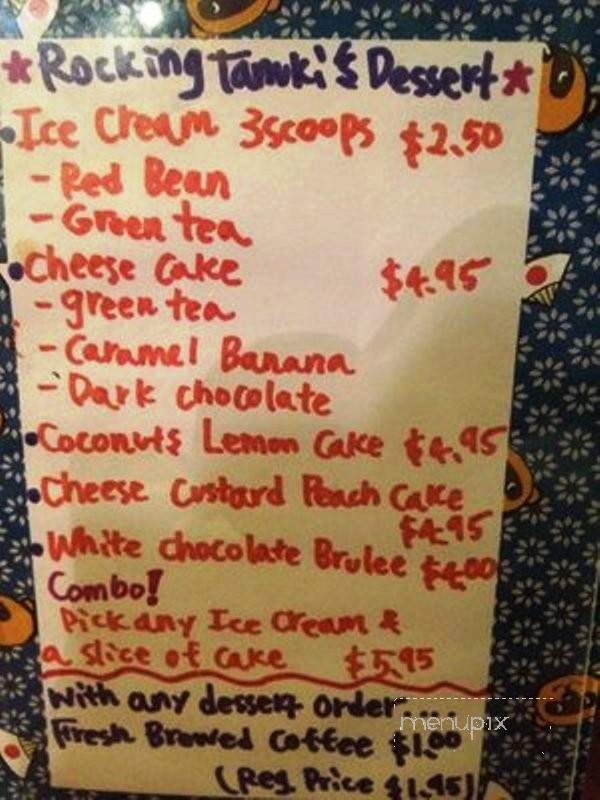 ★Rocking Tanuki's Dessert★
•Ice Cream 3scoops $2.50
- Red Bean
- Green tea
•Cheese Cake $4.95
- green tea
- Caramel Banana
- Dark chocolate
•Coconuts Lemon Cake $4.95
•Cheese Custard Peach Cake
$4.95
•White chocolate Brulee $4.00
Combo!
Pick any Ice Cream &
a slice of cake $5.95
With any dessert order...
Fresh Brewed Coffee $1.00
(Reg. Price $1.95)
menupix